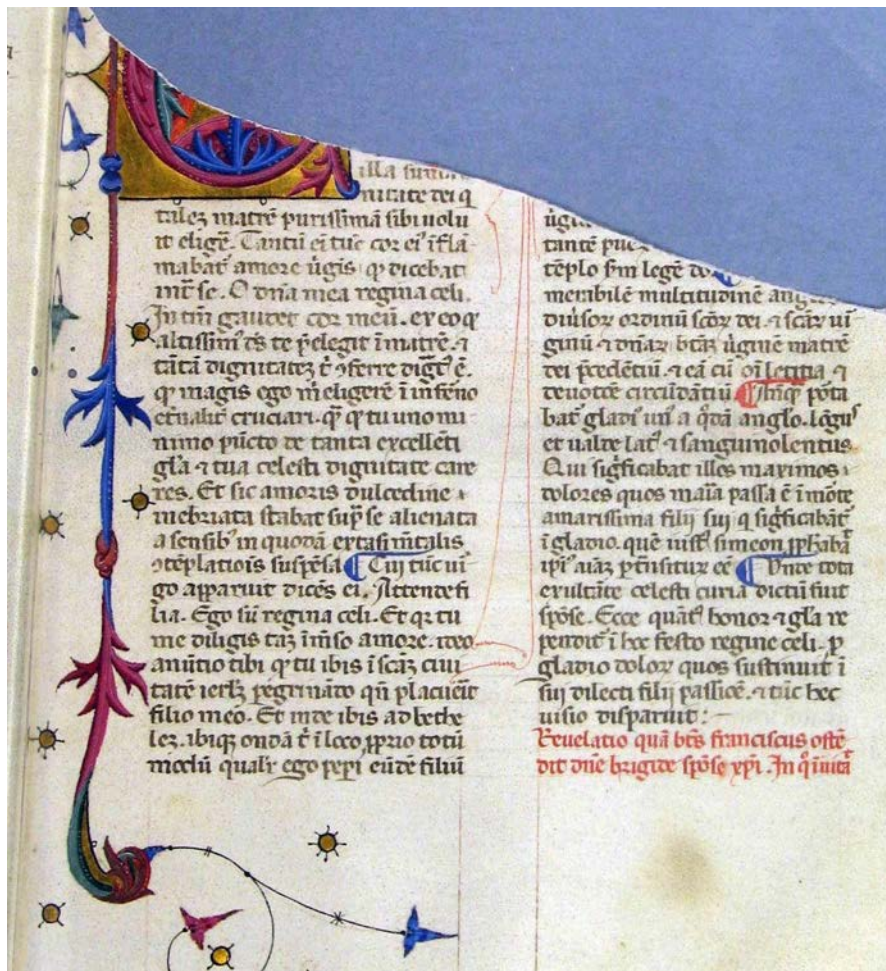 illa
nitate dei q
talez matrē purissimā sibi uolu
it elige᷒. Tantū ei tūc cor ei᷒ īflā
mabat᷒ amore ūgis qp dicebat
int᷒ se. O dn̄a mea regina celi.
In tm̄ gaudet cor meū. ex eo qp
altissim᷒ ds̄ te p̄elegit ī matrē. ⁊
tātā dignitatez t᷒ ꝯferre digt᷒ ē.
qp magis ego m᷒ eligerē ī inferno
et᷒nalit᷒ cruciari. qͣ qp tu uno mi
nimo pūcto de tanta excellēti
gl̄a ⁊ tua celesti dignitate care
res. Et sic amoris dulcedine
inebriata stabat sup̄ se alienata
a sensib᷒ in quodā extasi mētalis
ꝯtēplatiōis suspēsa ¶ Cui tūc uī
go apparuit dicēs ei. Attende fi
lia. Ego sū regina celi. Et qr tu
me diligis taz īmēso amore. ideo
anūtio tibi qp tu ibis ī scāz ciui
tatē ierlz pegrinādo qn̄ placuerit
filio meo. Et inde ibis ad bethe
lez. ibiqz ondā t᷒ ī loco pprio totū
modū qualit᷒ ego pepi eūdē filiū
tantē
tēplo sm legē
merabilē multitudinē
diūsoꝝ ordinū scōꝝ dei. ⁊ scāꝝ uī
ginū ⁊ dn̄aꝝ btāz ūginē matrē
dei p̄cedentiū. ⁊ eā cū oī letitia ⁊
deuotōe circūdātiū ¶ Hincqp pōta
bat᷒ gladi᷒ un᷒ a qdā anglo. lōgu᷒
et ualde lat᷒ ⁊ sanguinolentus
Qui sig᷒ficabat illos maximos
dolores quos maīa passa ē ī mōte
amarissima filij sui q sig᷒ficabāt᷒
ī gladio. quē iust᷒ simeon pphabā
ipi᷒ aīaz p᷒tn̄situꝝ eē ¶ Unde tota
exultāte celesti curia dictū fuit
spōse. Ecce quāt᷒ honor ⁊ gl̄a re
penditꝰ ī hoc festo regine celi. p̄
gladio doloꝝ quos sustinuit ī
sui dilecti filij passiōe. ⁊ tūc hec
uisio disparuit :~
Reuelatio quā bt̄s franciscus oste
dit dn̄e brigide spōse xp̄i. In q īuitā